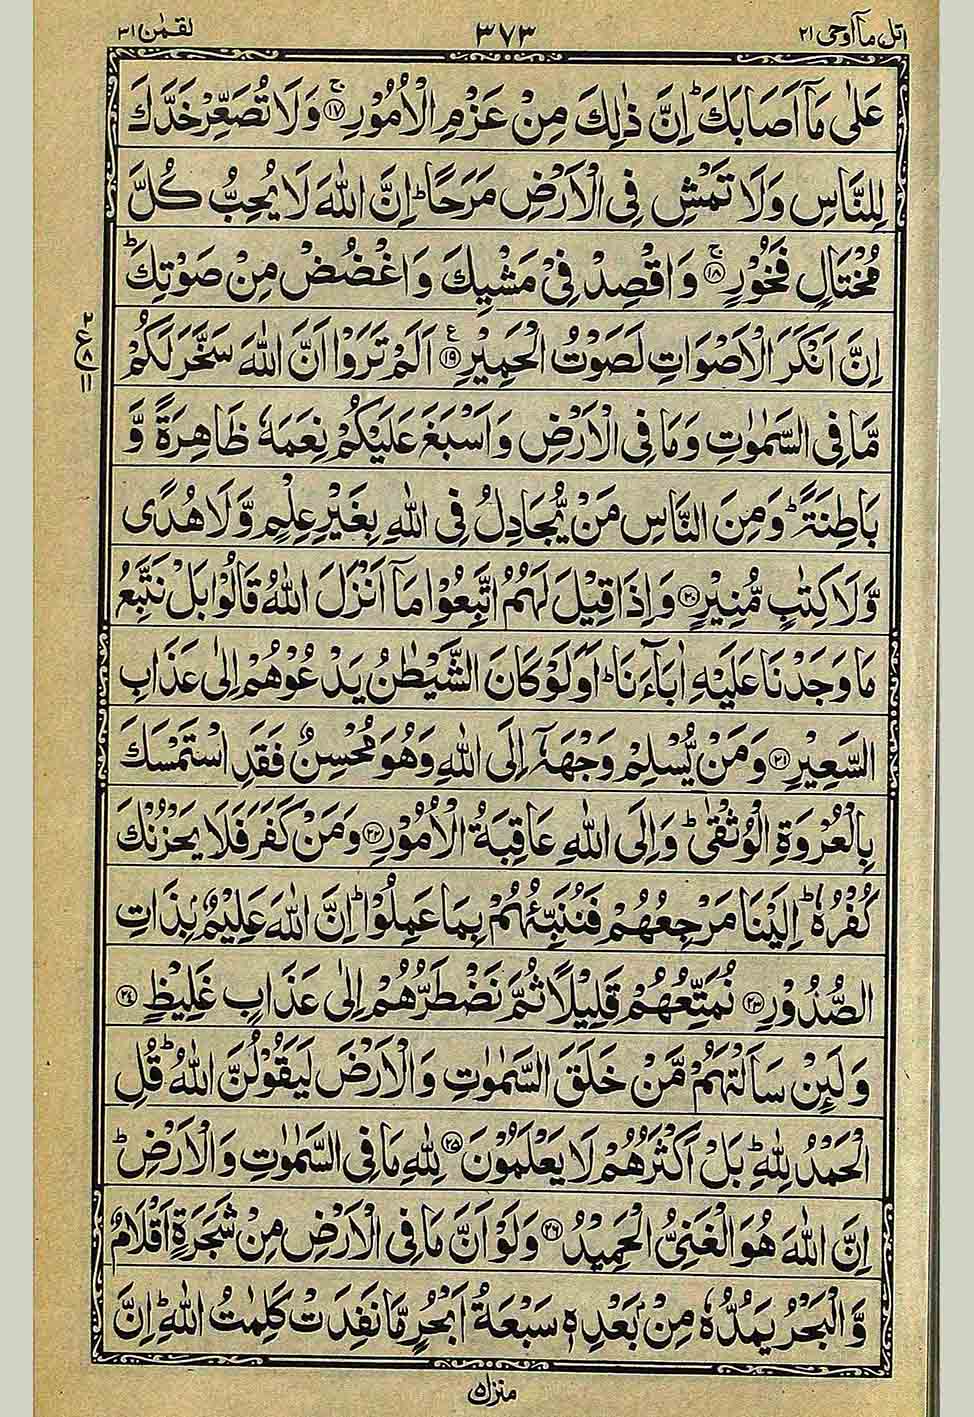 اتل ما اوحی ۲۱
۳۷۳
لقمٰن ۳۱
عَلٰى مَآ اَصَابَكَ ؕ اِنَّ ذٰلِكَ مِنْ عَزْمِ الْاُمُوْرِ ۚ﴿۱۷﴾ وَلَا تُصَعِّرْ خَدَّكَ
لِلنَّاسِ وَلَا تَمْشِ فِى الْاَرْضِ مَرَحًا ؕ اِنَّ اللّٰهَ لَا يُحِبُّ كُلَّ
مُخْتَالٍ فَخُوْرٍ ۚ﴿۱۸﴾ وَاقْصِدْ فِىْ مَشْيِكَ وَاغْضُضْ مِنْ صَوْتِكَ ؕ
اِنَّ اَنْكَرَ الْاَصْوَاتِ لَصَوْتُ الْحَمِيْرِ ﴿۱۹﴾ ع اَلَمْ تَرَوْا اَنَّ اللّٰهَ سَخَّرَ لَكُمْ
۲ ع ۸ ۱۱
مَّا فِى السَّمٰوٰتِ وَمَا فِى الْاَرْضِ وَاَسْبَغَ عَلَيْكُمْ نِعَمَهٗ ظَاهِرَةً وَّ
بَاطِنَةً ؕ وَمِنَ النَّاسِ مَنْ يُّجَادِلُ فِى اللّٰهِ بِغَيْرِ عِلْمٍ وَّلَا هُدًى
وَّلَا كِتٰبٍ مُّنِيْرٍ ﴿۲۰﴾ وَاِذَا قِيْلَ لَهُمُ اتَّبِعُوْا مَآ اَنْزَلَ اللّٰهُ قَالُوْا بَلْ نَتَّبِعُ
مَا وَجَدْنَا عَلَيْهِ اٰبَآءَنَا ؕ اَوَلَوْ كَانَ الشَّيْطٰنُ يَدْعُوْهُمْ اِلٰى عَذَابِ
السَّعِيْرِ ﴿۲۱﴾ وَمَنْ يُّسْلِمْ وَجْهَهٗۤ اِلَى اللّٰهِ وَهُوَ مُحْسِنٌ فَقَدِ اسْتَمْسَكَ
بِالْعُرْوَةِ الْوُثْقٰى ؕ وَاِلَى اللّٰهِ عَاقِبَةُ الْاُمُوْرِ ﴿۲۲﴾ وَمَنْ كَفَرَ فَلَا يَحْزُنْكَ
كُفْرُهٗ ؕ اِلَيْنَا مَرْجِعُهُمْ فَنُنَبِّئُهُمْ بِمَا عَمِلُوْا ؕ اِنَّ اللّٰهَ عَلِيْمٌۢ بِذَاتِ
الصُّدُوْرِ ﴿۲۳﴾ نُمَتِّعُهُمْ قَلِيْلًا ثُمَّ نَضْطَرُّهُمْ اِلٰى عَذَابٍ غَلِيْظٍ ﴿۲۴﴾
وَلَئِنْ سَاَلْتَهُمْ مَّنْ خَلَقَ السَّمٰوٰتِ وَالْاَرْضَ لَيَقُوْلُنَّ اللّٰهُ ؕ قُلِ
الْحَمْدُ لِلّٰهِ ؕ بَلْ اَكْثَرُهُمْ لَا يَعْلَمُوْنَ ﴿۲۵﴾ لِلّٰهِ مَا فِى السَّمٰوٰتِ وَالْاَرْضِ ؕ
اِنَّ اللّٰهَ هُوَ الْغَنِىُّ الْحَمِيْدُ ﴿۲۶﴾ وَلَوْ اَنَّ مَا فِى الْاَرْضِ مِنْ شَجَرَةٍ اَقْلَامٌ
وَّالْبَحْرُ يَمُدُّهٗ مِنْۢ بَعْدِهٖ سَبْعَةُ اَبْحُرٍ مَّا نَفِدَتْ كَلِمٰتُ اللّٰهِ ؕ اِنَّ
منزل ۵